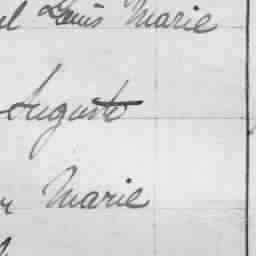 Louis Marie
Auguste
Marie